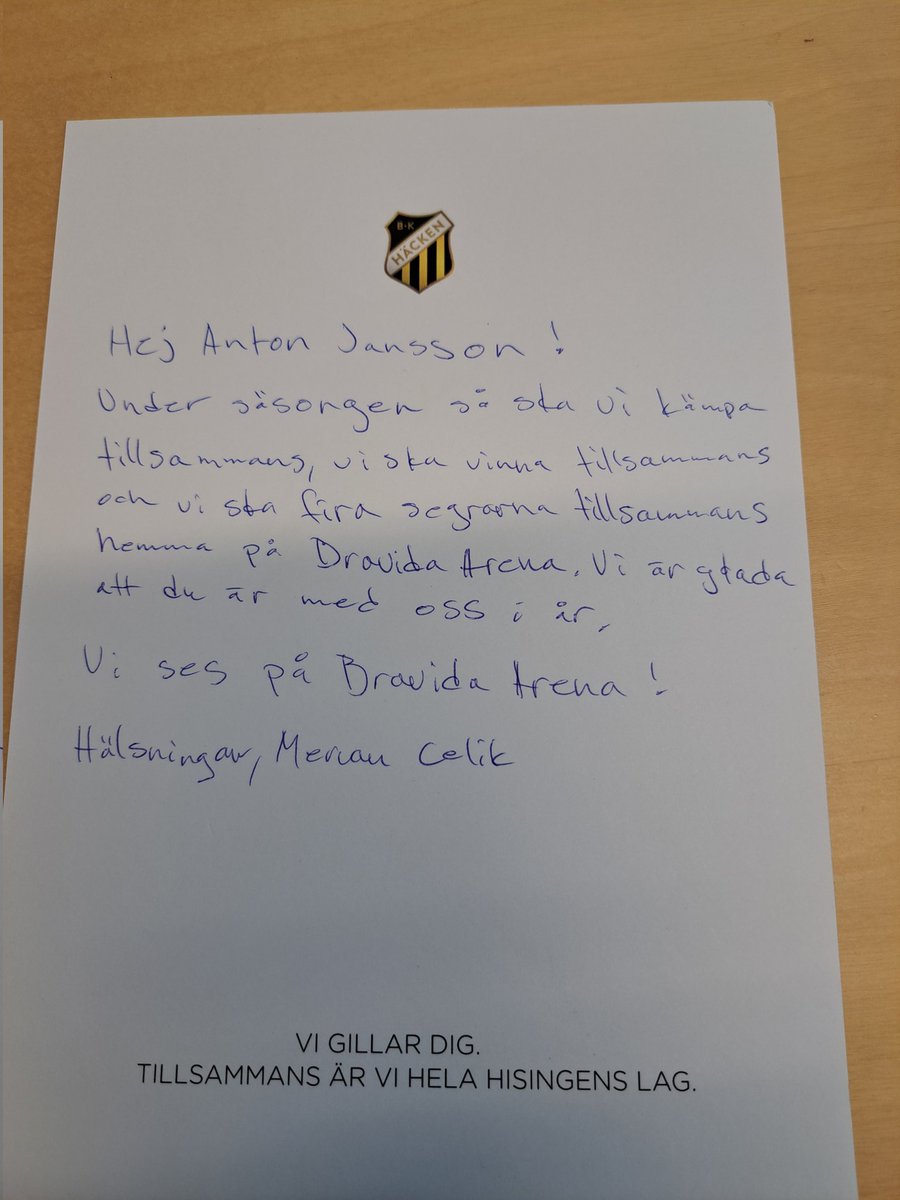 B·K
HÄCKEN
Hej Anton Jansson!
Under säsongen så ska vi kämpa
tillsammans, vi ska vinna tillsammans
och vi ska fira segrarna tillsammans
hemma på Bravida Arena. Vi är glada
att du är med oss i år.
Vi ses på Bravida Arena!
Hälsningar, Mervan Celik
VI GILLAR DIG.
TILLSAMMANS ÄR VI HELA HISINGENS LAG.